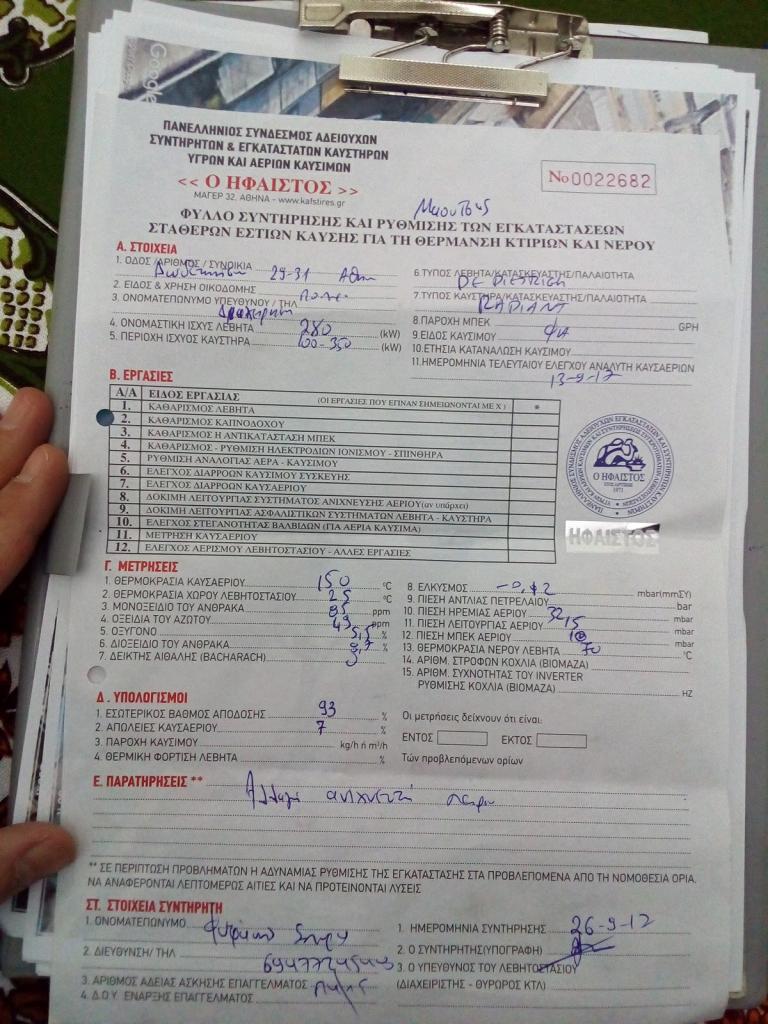 Google
ΠΑΝΕΛΛΗΝΙΟΣ ΣΥΝΔΕΣΜΟΣ ΑΔΕΙΟΥΧΩΝ
ΣΥΝΤΗΡΗΤΩΝ & ΕΓΚΑΤΑΣΤΑΤΩΝ ΚΑΥΣΤΗΡΩΝ
ΥΓΡΩΝ ΚΑΙ ΑΕΡΙΩΝ ΚΑΥΣΙΜΩΝ
<< Ο ΗΦΑΙΣΤΟΣ >>
ΜΑΓΕΡ 32. ΑΘΗΝΑ - www.kafstires.gr
No 0022682
ΦΥΛΛΟ ΣΥΝΤΗΡΗΣΗΣ ΚΑΙ ΡΥΘΜΙΣΗΣ ΤΩΝ ΕΓΚΑΤΑΣΤΑΣΕΩΝ
ΣΤΑΘΕΡΩΝ ΕΣΤΙΩΝ ΚΑΥΣΗΣ ΓΙΑ ΤΗ ΘΕΡΜΑΝΣΗ ΚΤΙΡΙΩΝ ΚΑΙ ΝΕΡΟΥ
Α. ΣΤΟΙΧΕΙΑ
1. ΟΔΟΣ /ΑΡΙΘΜΟΣ / ΣΥΝΟΙΚΙΑ 29-31
2. ΕΙΔΟΣ & ΧΡΗΣΗ ΟΙΚΟΔΟΜΗΣ
3. ΟΝΟΜΑΤΕΠΩΝΥΜΟ ΥΠΕΥΘΥΝΟΥ / ΤΗΛ
4. ΟΝΟΜΑΣΤΙΚΗ ΙΣΧΥΣ ΛΕΒΗΤΑ 280 (kW)
5. ΠΕΡΙΟΧΗ ΙΣΧΥΟΣ ΚΑΥΣΤΗΡΑ 100-350 (kW)
6. ΤΥΠΟΣ ΛΕΒΗΤΑ/ΚΑΤΑΣΚΕΥΑΣΤΗΣ/ΠΑΛΑΙΟΤΗΤΑ
DE DIETRICH
7. ΤΥΠΟΣ ΚΑΥΣΤΗΡΑ/ΚΑΤΑΣΚΕΥΑΣΤΗΣ/ΠΑΛΑΙΟΤΗΤΑ
RADIANT
8. ΠΑΡΟΧΗ ΜΠΕΚ GPH
9. ΕΙΔΟΣ ΚΑΥΣΙΜΟΥ ΦΑ
10. ΕΤΗΣΙΑ ΚΑΤΑΝΑΛΩΣΗ ΚΑΥΣΙΜΟΥ
11. ΗΜΕΡΟΜΗΝΙΑ ΤΕΛΕΥΤΑΙΟΥ ΕΛΕΓΧΟΥ ΑΝΑΛΥΤΗ ΚΑΥΣΑΕΡΙΩΝ
13-9-17
Β. ΕΡΓΑΣΙΕΣ
Α/Α ΕΙΔΟΣ ΕΡΓΑΣΙΑΣ (ΟΙ ΕΡΓΑΣΙΕΣ ΠΟΥ ΕΓΙΝΑΝ ΣΗΜΕΙΩΝΟΝΤΑΙ ΜΕ Χ ) *
1. ΚΑΘΑΡΙΣΜΟΣ ΛΕΒΗΤΑ
2. ΚΑΘΑΡΙΣΜΟΣ ΚΑΠΝΟΔΟΧΟΥ
3. ΚΑΘΑΡΙΣΜΟΣ Η ΑΝΤΙΚΑΤΑΣΤΑΣΗ ΜΠΕΚ
4. ΚΑΘΑΡΙΣΜΟΣ - ΡΥΘΜΙΣΗ ΗΛΕΚΤΡΟΔΙΩΝ ΙΟΝΙΣΜΟΥ - ΣΠΙΝΘΗΡΑ
5. ΡΥΘΜΙΣΗ ΑΝΑΛΟΓΙΑΣ ΑΕΡΑ - ΚΑΥΣΙΜΟΥ
6. ΕΛΕΓΧΟΣ ΔΙΑΡΡΟΩΝ ΚΑΥΣΙΜΟΥ ΣΥΣΚΕΥΗΣ
7. ΕΛΕΓΧΟΣ ΔΙΑΡΡΟΩΝ ΚΑΥΣΑΕΡΙΟΥ
8. ΔΟΚΙΜΗ ΛΕΙΤΟΥΡΓΙΑΣ ΣΥΣΤΗΜΑΤΟΣ ΑΝΙΧΝΕΥΣΗΣ ΑΕΡΙΟΥ(αν υπάρχει)
9. ΔΟΚΙΜΗ ΛΕΙΤΟΥΡΓΙΑΣ ΑΣΦΑΛΙΣΤΙΚΩΝ ΣΥΣΤΗΜΑΤΩΝ ΛΕΒΗΤΑ - ΚΑΥΣΤΗΡΑ
10. ΕΛΕΓΧΟΣ ΣΤΕΓΑΝΟΤΗΤΑΣ ΒΑΛΒΙΔΩΝ (ΓΙΑ ΑΕΡΙΑ ΚΑΥΣΙΜΑ)
11. ΜΕΤΡΗΣΗ ΚΑΥΣΑΕΡΙΟΥ
12. ΕΛΕΓΧΟΣ ΑΕΡΙΣΜΟΥ ΛΕΒΗΤΟΣΤΑΣΙΟΥ - ΑΛΛΕΣ ΕΡΓΑΣΙΕΣ
Ο ΗΦΑΙΣΤΟΣ
ΗΦΑΙΣΤΟΣ
Γ. ΜΕΤΡΗΣΕΙΣ
1. ΘΕΡΜΟΚΡΑΣΙΑ ΚΑΥΣΑΕΡΙΟΥ 150 °C
2. ΘΕΡΜΟΚΡΑΣΙΑ ΧΩΡΟΥ ΛΕΒΗΤΟΣΤΑΣΙΟΥ 25 °C
3. ΜΟΝΟΞΕΙΔΙΟ ΤΟΥ ΑΝΘΡΑΚΑ 85 ppm
4. ΟΞΕΙΔΙΑ ΤΟΥ ΑΖΩΤΟΥ 49 ppm
5. ΟΞΥΓΟΝΟ 5,5 %
6. ΔΙΟΞΕΙΔΙΟ ΤΟΥ ΑΝΘΡΑΚΑ %
7. ΔΕΙΚΤΗΣ ΑΙΘΑΛΗΣ (BACHARACH)
8. ΕΛΚΥΣΜΟΣ mbar(mmΣΥ)
9. ΠΙΕΣΗ ΑΝΤΛΙΑΣ ΠΕΤΡΕΛΑΙΟΥ bar
10. ΠΙΕΣΗ ΗΡΕΜΙΑΣ ΑΕΡΙΟΥ mbar
11. ΠΙΕΣΗ ΛΕΙΤΟΥΡΓΙΑΣ ΑΕΡΙΟΥ mbar
12. ΠΙΕΣΗ ΜΠΕΚ ΑΕΡΙΟΥ mbar
13. ΘΕΡΜΟΚΡΑΣΙΑ ΝΕΡΟΥ ΛΕΒΗΤΑ 70 °C
14. ΑΡΙΘΜ. ΣΤΡΟΦΩΝ ΚΟΧΛΙΑ (ΒΙΟΜΑΖΑ)
15. ΑΡΙΘΜ. ΣΥΧΝΟΤΗΤΑΣ ΤΟΥ INVERTER
ΡΥΘΜΙΣΗΣ ΚΟΧΛΙΑ (ΒΙΟΜΑΖΑ) HZ
Δ . ΥΠΟΛΟΓΙΣΜΟΙ
1. ΕΣΩΤΕΡΙΚΟΣ ΒΑΘΜΟΣ ΑΠΟΔΟΣΗΣ 93 %
2. ΑΠΩΛΕΙΕΣ ΚΑΥΣΑΕΡΙΟΥ 7 %
3. ΠΑΡΟΧΗ ΚΑΥΣΙΜΟΥ kg/h ή m³/h
4. ΘΕΡΜΙΚΗ ΦΟΡΤΙΣΗ ΛΕΒΗΤΑ %
Οι μετρήσεις δείχνουν ότι είναι:
ΕΝΤΟΣ ΕΚΤΟΣ
Των προβλεπόμενων ορίων
Ε. ΠΑΡΑΤΗΡΗΣΕΙΣ **
Αλλαγή ανιχνευτή
** ΣΕ ΠΕΡΙΠΤΩΣΗ ΠΡΟΒΛΗΜΑΤΩΝ Η ΑΔΥΝΑΜΙΑΣ ΡΥΘΜΙΣΗΣ ΤΗΣ ΕΓΚΑΤΑΣΤΑΣΗΣ ΣΤΑ ΠΡΟΒΛΕΠΟΜΕΝΑ ΑΠΟ ΤΗ ΝΟΜΟΘΕΣΙΑ ΟΡΙΑ.
ΝΑ ΑΝΑΦΕΡΟΝΤΑΙ ΛΕΠΤΟΜΕΡΩΣ ΑΙΤΙΕΣ ΚΑΙ ΝΑ ΠΡΟΤΕΙΝΟΝΤΑΙ ΛΥΣΕΙΣ
ΣΤ. ΣΤΟΙΧΕΙΑ ΣΥΝΤΗΡΗΤΗ
1. ΟΝΟΜΑΤΕΠΩΝΥΜΟ
2. ΔΙΕΥΘΥΝΣΗ/ ΤΗΛ
3. ΑΡΙΘΜΟΣ ΑΔΕΙΑΣ ΑΣΚΗΣΗΣ ΕΠΑΓΓΕΛΜΑΤΟΣ
4. Δ.Ο.Υ. ΕΝΑΡΞΗΣ ΕΠΑΓΓΕΛΜΑΤΟΣ
1. ΗΜΕΡΟΜΗΝΙΑ ΣΥΝΤΗΡΗΣΗΣ 26-9-17
2. Ο ΣΥΝΤΗΡΗΤΗΣ(ΥΠΟΓΡΑΦΗ)
3. Ο ΥΠΕΥΘΥΝΟΣ ΤΟΥ ΛΕΒΗΤΟΣΤΑΣΙΟΥ
(ΔΙΑΧΕΙΡΙΣΤΗΣ - ΘΥΡΩΡΟΣ ΚΤΛ)